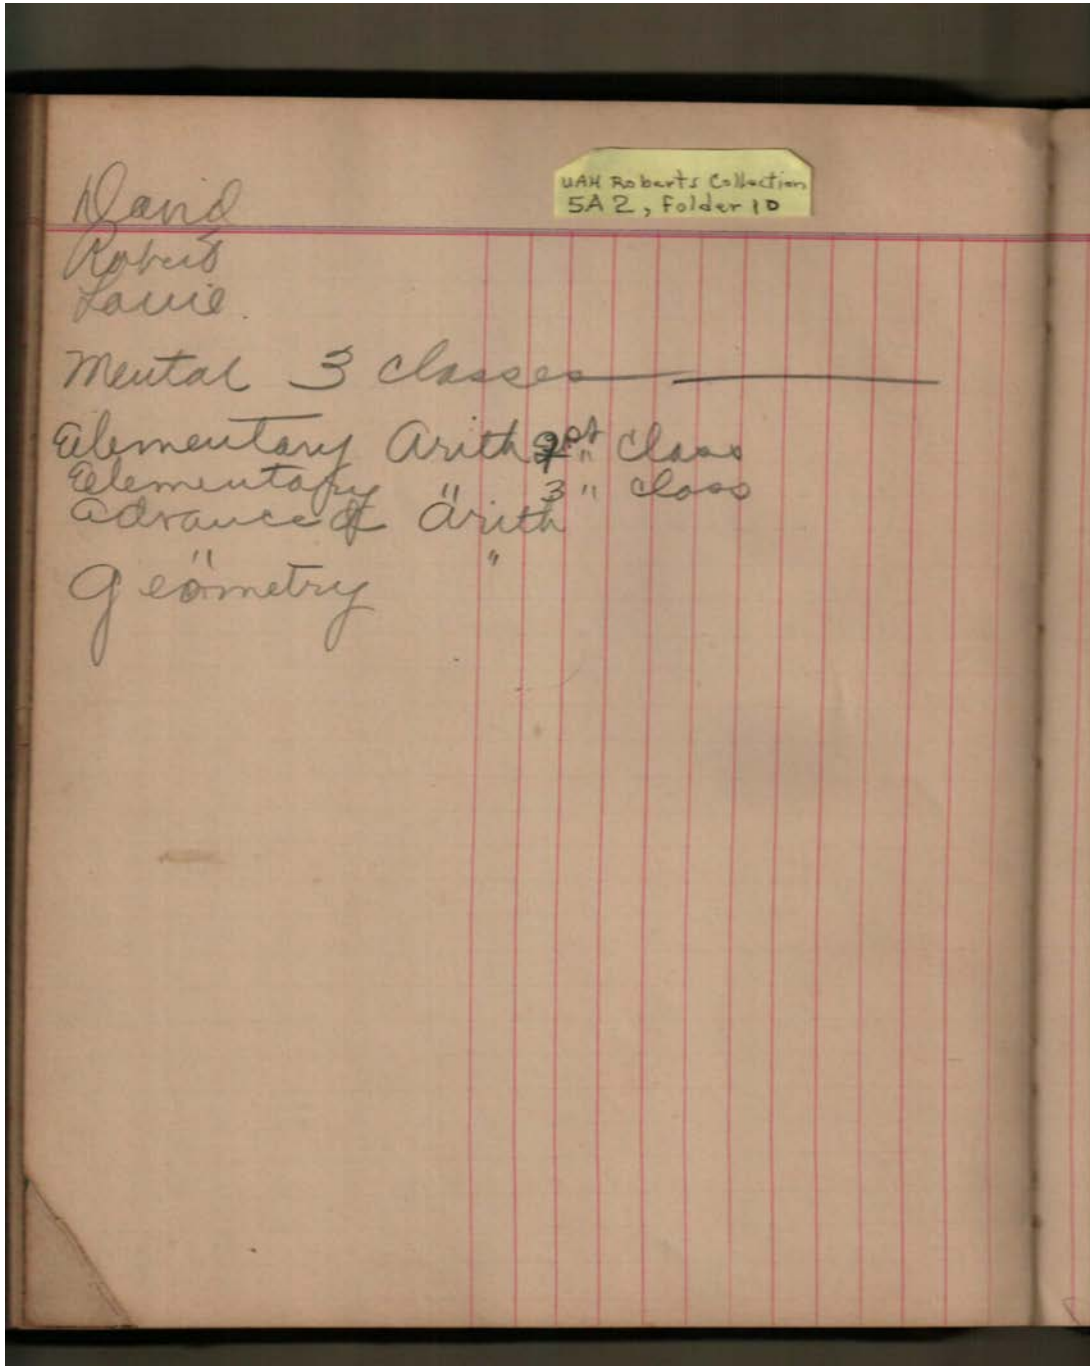 UAH Roberts Collection
5A2, Folder 10
David
Robert
Mental 3 classes
Elementary Arith class
Elementary " 3 " class
Advanced Arith
" "
Geometry